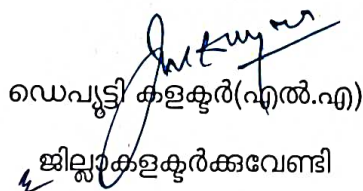 ഡെപ്യൂട്ടി കളക്ടർ(എൽ.എ)
ജില്ലാകളക്ടർക്കുവേണ്ടി